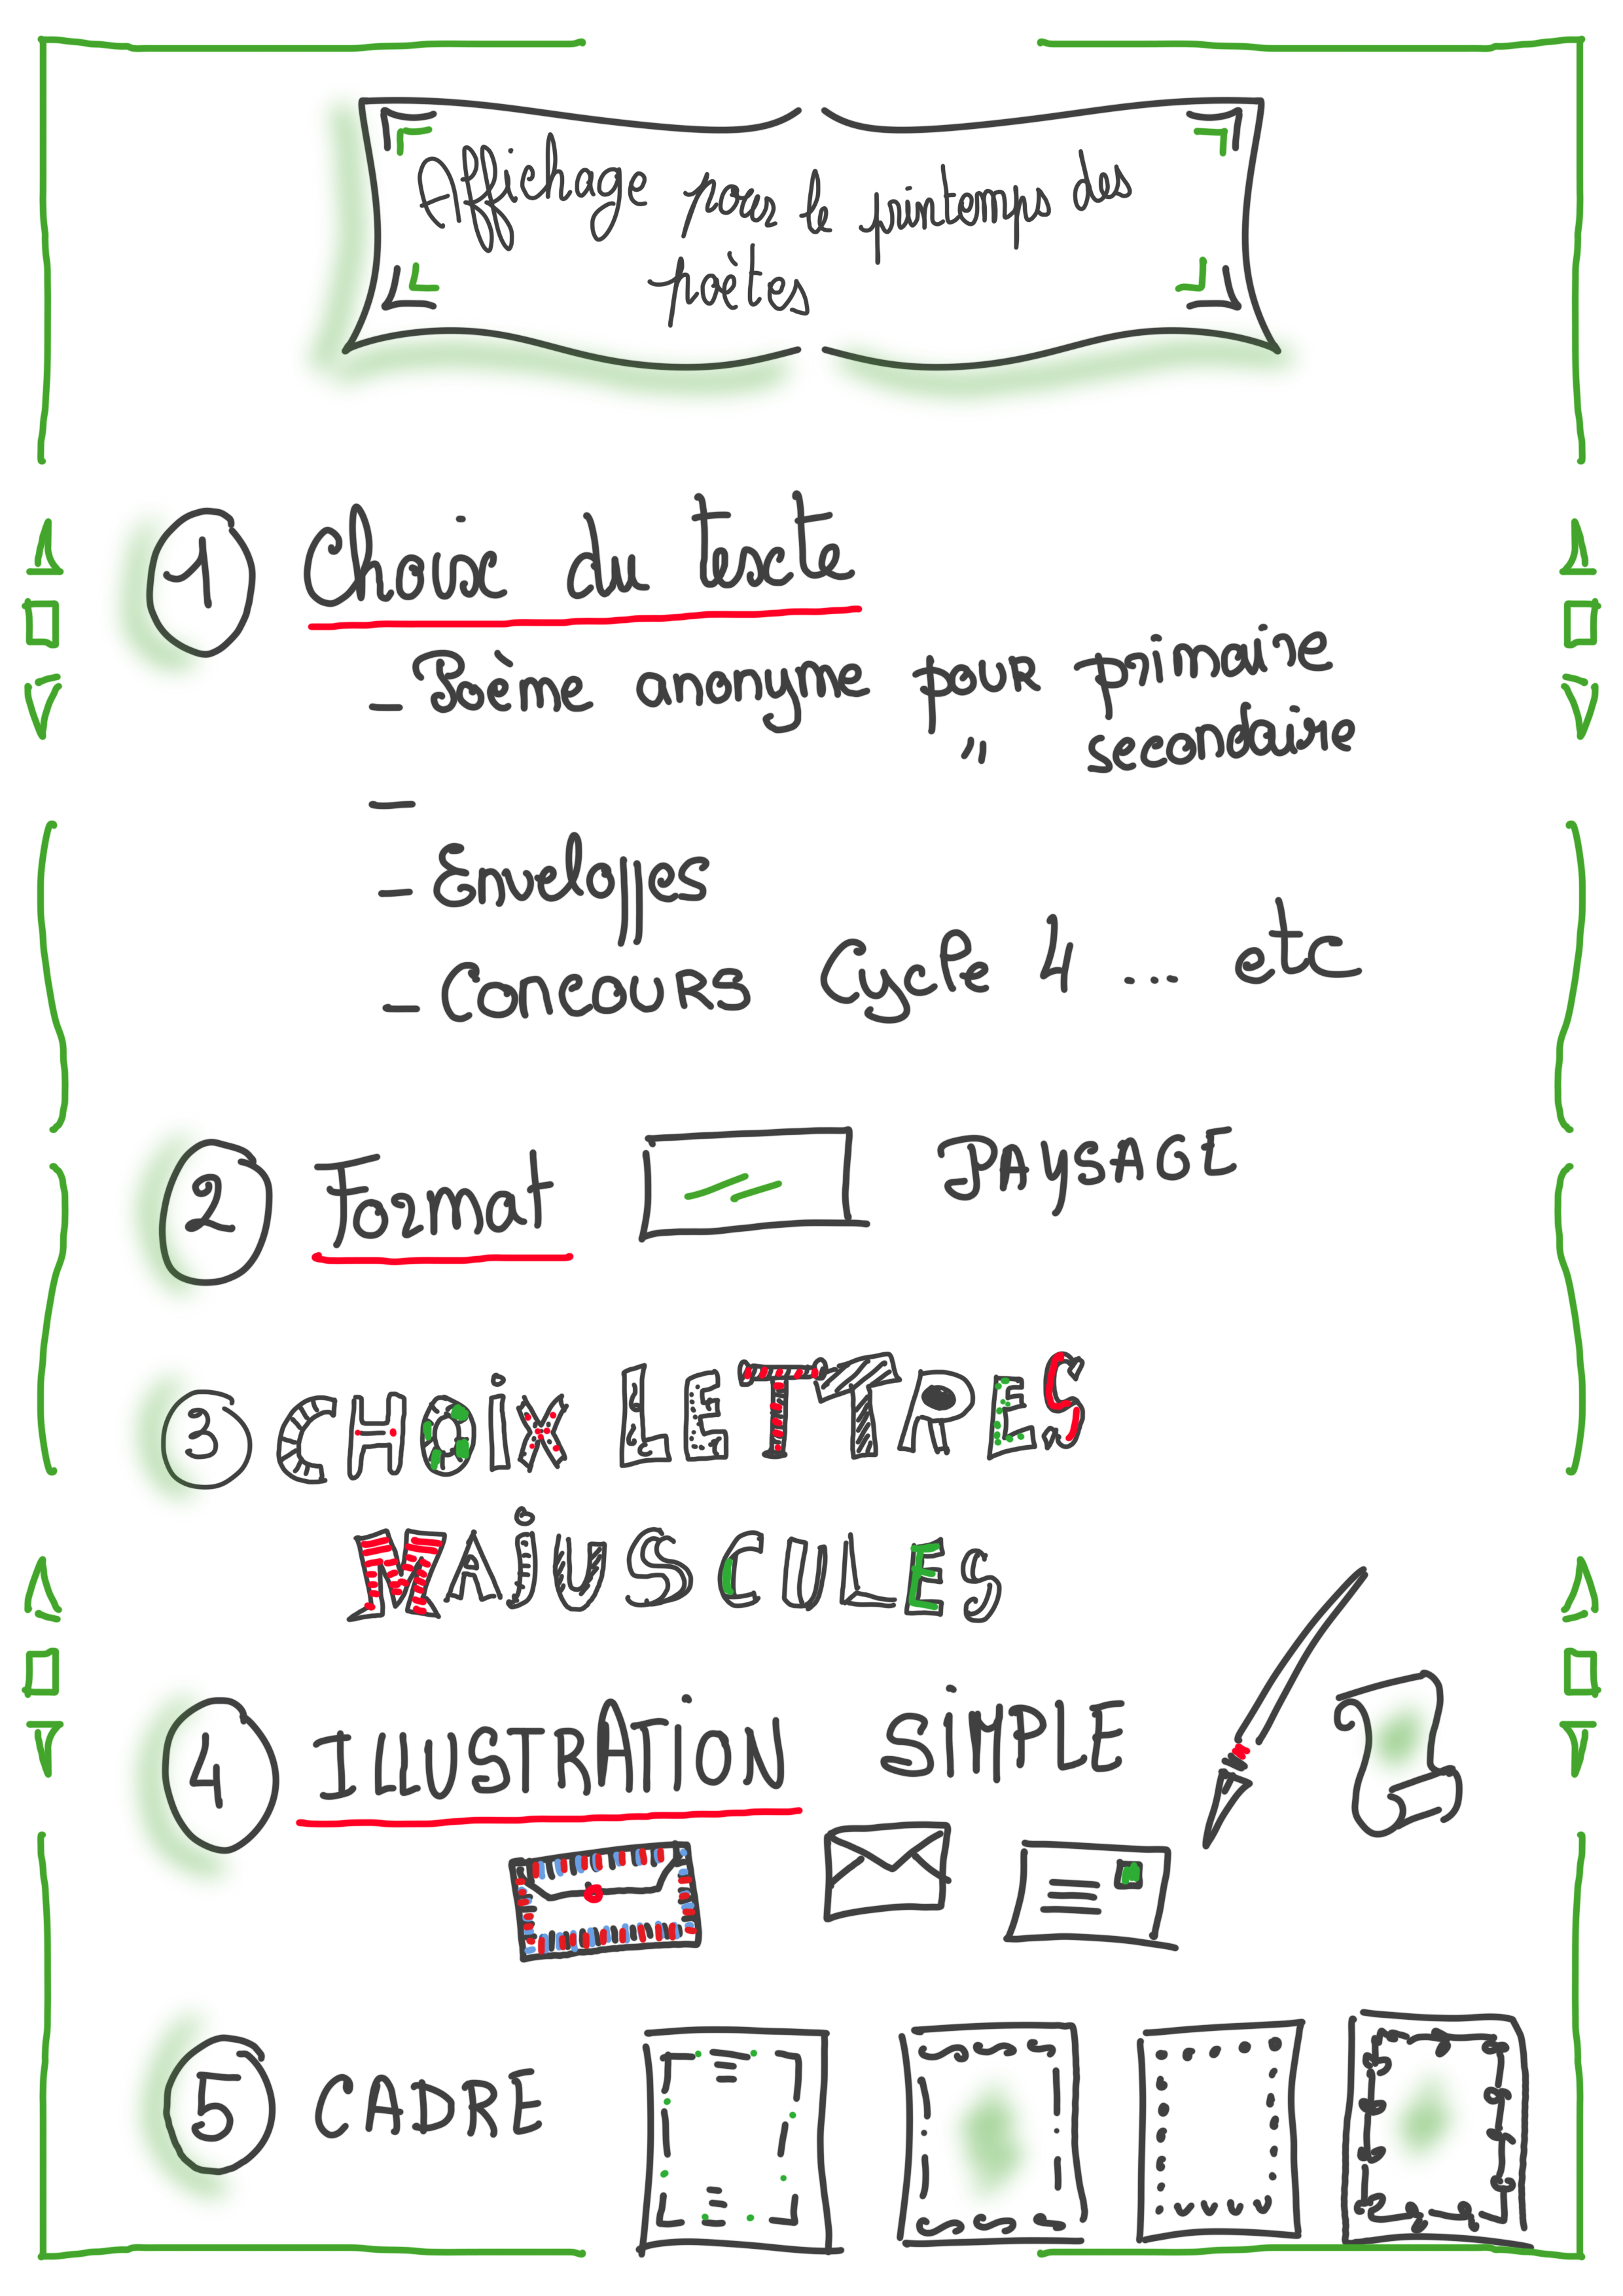 Affichage pour le printemps des
poètes
1 Choix du texte
- Poème anonyme pour primaire
" secondaire
-
- Enveloppes
- Concours Cycle 4 ... etc
2 Format PAYSAGE
3 CHOIX LETTRES
MAJUSCULES
4 ILLUSTRATION SIMPLE
5 CADRE